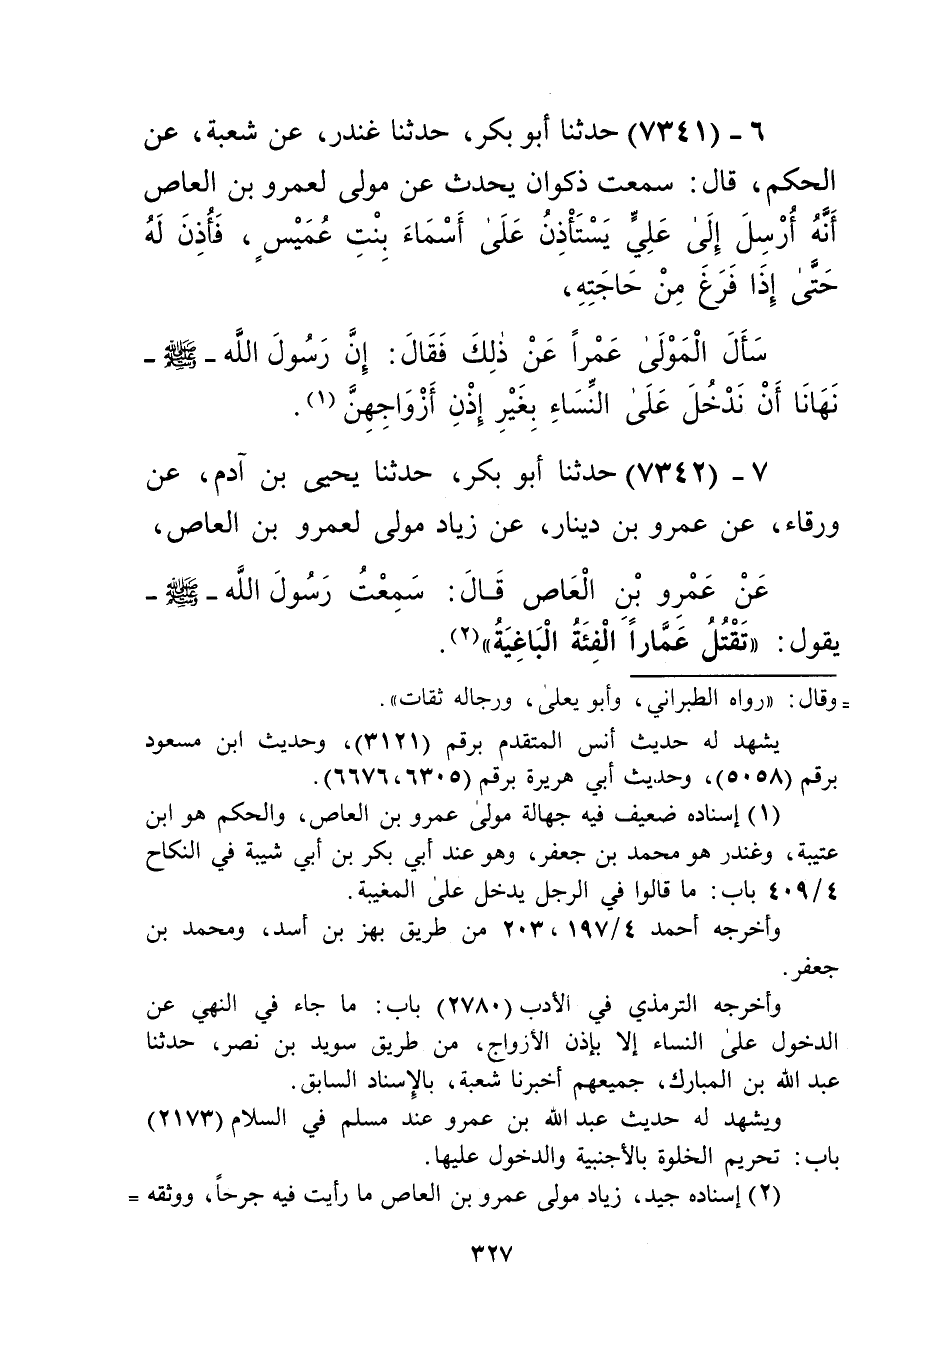 ٦ - (٧٣٤١) حدثنا أبو بكر، حدثنا غندر، عن شعبة، عن
الحكم، قال: سمعت ذكوان يحدث عن مولى لعمرو بن العاص
أَنَّهُ أُرْسِلَ إِلَىٰ عَلِيٍّ يَسْتَأْذِنُ عَلَىٰ أَسْمَاءَ بِنْتِ عُمَيْسٍ، فَأُذِنَ لَهُ
حَتَّىٰ إِذَا فَرَغَ مِنْ حَاجَتِهِ،
سَأَلَ الْمَوْلَىٰ عَمْراً عَنْ ذٰلِكَ فَقَالَ: إِنَّ رَسُولَ اللَّه - ﷺ -
نَهَانَا أَنْ نَدْخُلَ عَلَىٰ النِّسَاءِ بِغَيْرِ إِذْنِ أَزْوَاجِهِنَّ (١).
٧ - (٧٣٤٢) حدثنا أبو بكر، حدثنا يحيى بن آدم، عن
ورقاء، عن عمرو بن دينار، عن زياد مولى لعمرو بن العاص،
عَنْ عَمْرِو بْنِ الْعَاصِ قَـالَ: سَمِعْتُ رَسُولَ اللَّه - ﷺ -
يقول: «تَقْتُلُ عَمَّاراً الْفِئَةُ الْبَاغِيَةُ»(٢).
= وقال: «رواه الطبراني، وأبو يعلىٰ، ورجاله ثقات».
يشهد له حديث أنس المتقدم برقم (٣١٢١)، وحديث ابن مسعود
برقم (٥٠٥٨)، وحديث أبي هريرة برقم (٦٣٠٥، ٦٦٧٦).
(١) إسناده ضعيف فيه جهالة مولىٰ عمرو بن العاص، والحكم هو ابن
عتيبة، وغندر هو محمد بن جعفر، وهو عند أبي بكر بن أبي شيبة في النكاح
٤/ ٤٠٩ باب: ما قالوا في الرجل يدخل علىٰ المغيبة.
وأخرجه أحمد ٤/ ١٩٧، ٢٠٣ من طريق بهز بن أسد، ومحمد بن
جعفر.
وأخرجه الترمذي في الأدب (٢٧٨٠) باب: ما جاء في النهي عن
الدخول علىٰ النساء إلا بإذن الأزواج، من طريق سويد بن نصر، حدثنا
عبد الله بن المبارك، جميعهم أخبرنا شعبة، بالإِسناد السابق.
ويشهد له حديث عبد الله بن عمرو عند مسلم في السلام (٢١٧٣)
باب: تحريم الخلوة بالأجنبية والدخول عليها.
(٢) إسناده جيد، زياد مولى عمرو بن العاص ما رأيت فيه جرحاً، ووثقه =
٣٢٧